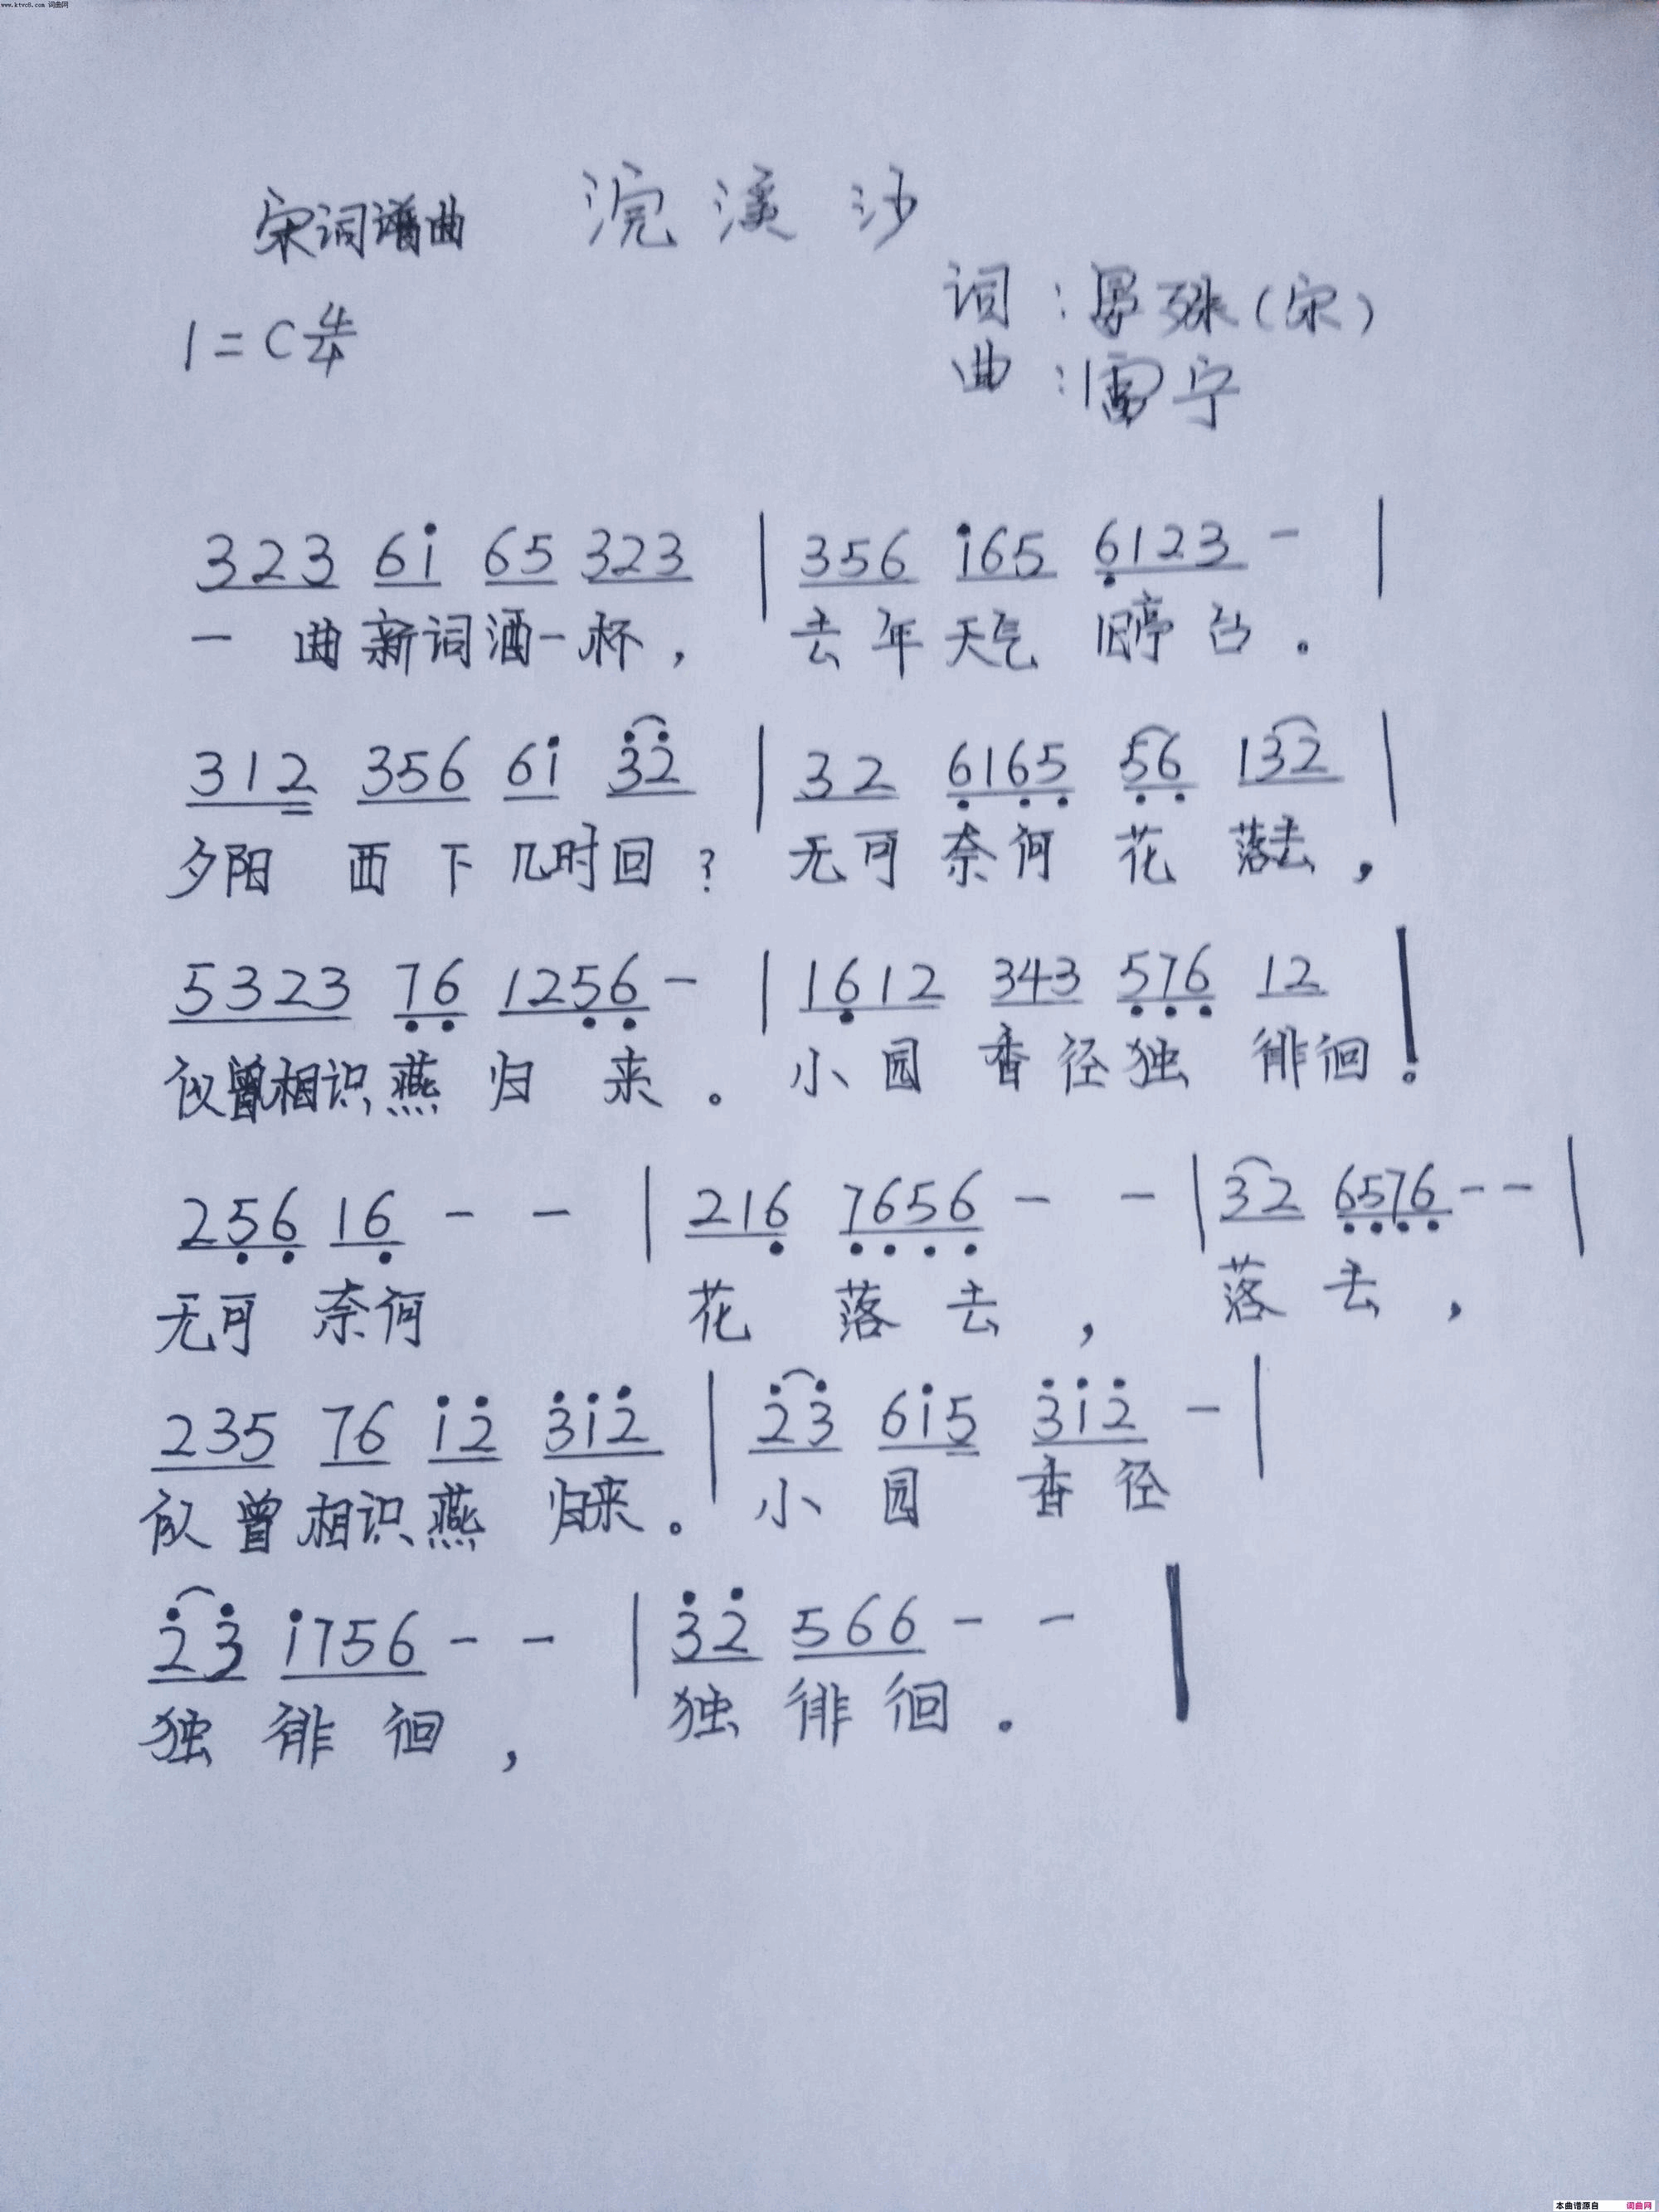 www.ktvc8.com 词曲网
宋词谱曲 浣溪沙
词：晏殊（宋）
1=C 4/4
曲：雷宁
3 2 3 6 i̇ 6 5 3 2 3 | 3 5 6 i̇ 6 5 6̣ 1 2 3 - |
一曲新词酒一杯，去年天气旧亭台。
3 1 2 3 5 6 6 i̇ 3̇ 2̇ | 3 2 6̣ 1 6̣ 5̣ 5̣ 6̣ 1 3 2 |
夕阳西下几时回？无可奈何花落去，
5 3 2 3 7̣ 6̣ 1 2 5̣ 6̣ - | 1 6̣ 1 2 3 4 3 5̣ 7̣ 6̣ 1 2 |
似曾相识燕归来。小园香径独徘徊。
2 5̣ 6̣ 1 6̣ - - | 2 1 6̣ 7̣ 6̣ 5̣ 6̣ - - | 3 2 6̣ 5̣ 7̣ 6̣ - - |
无可奈何花落去，落去，
2 3 5 7 6 i̇ 2̇ 3̇ i̇ 2̇ | 2̇ 3̇ 6 i̇ 5 3̇ i̇ 2̇ - |
似曾相识燕归来。小园香径
2̇ 3̇ i̇ 7 5 6 - - | 3̇ 2̇ 5 6 6 - - |
独徘徊，独徘徊.
本曲谱源自 词曲网